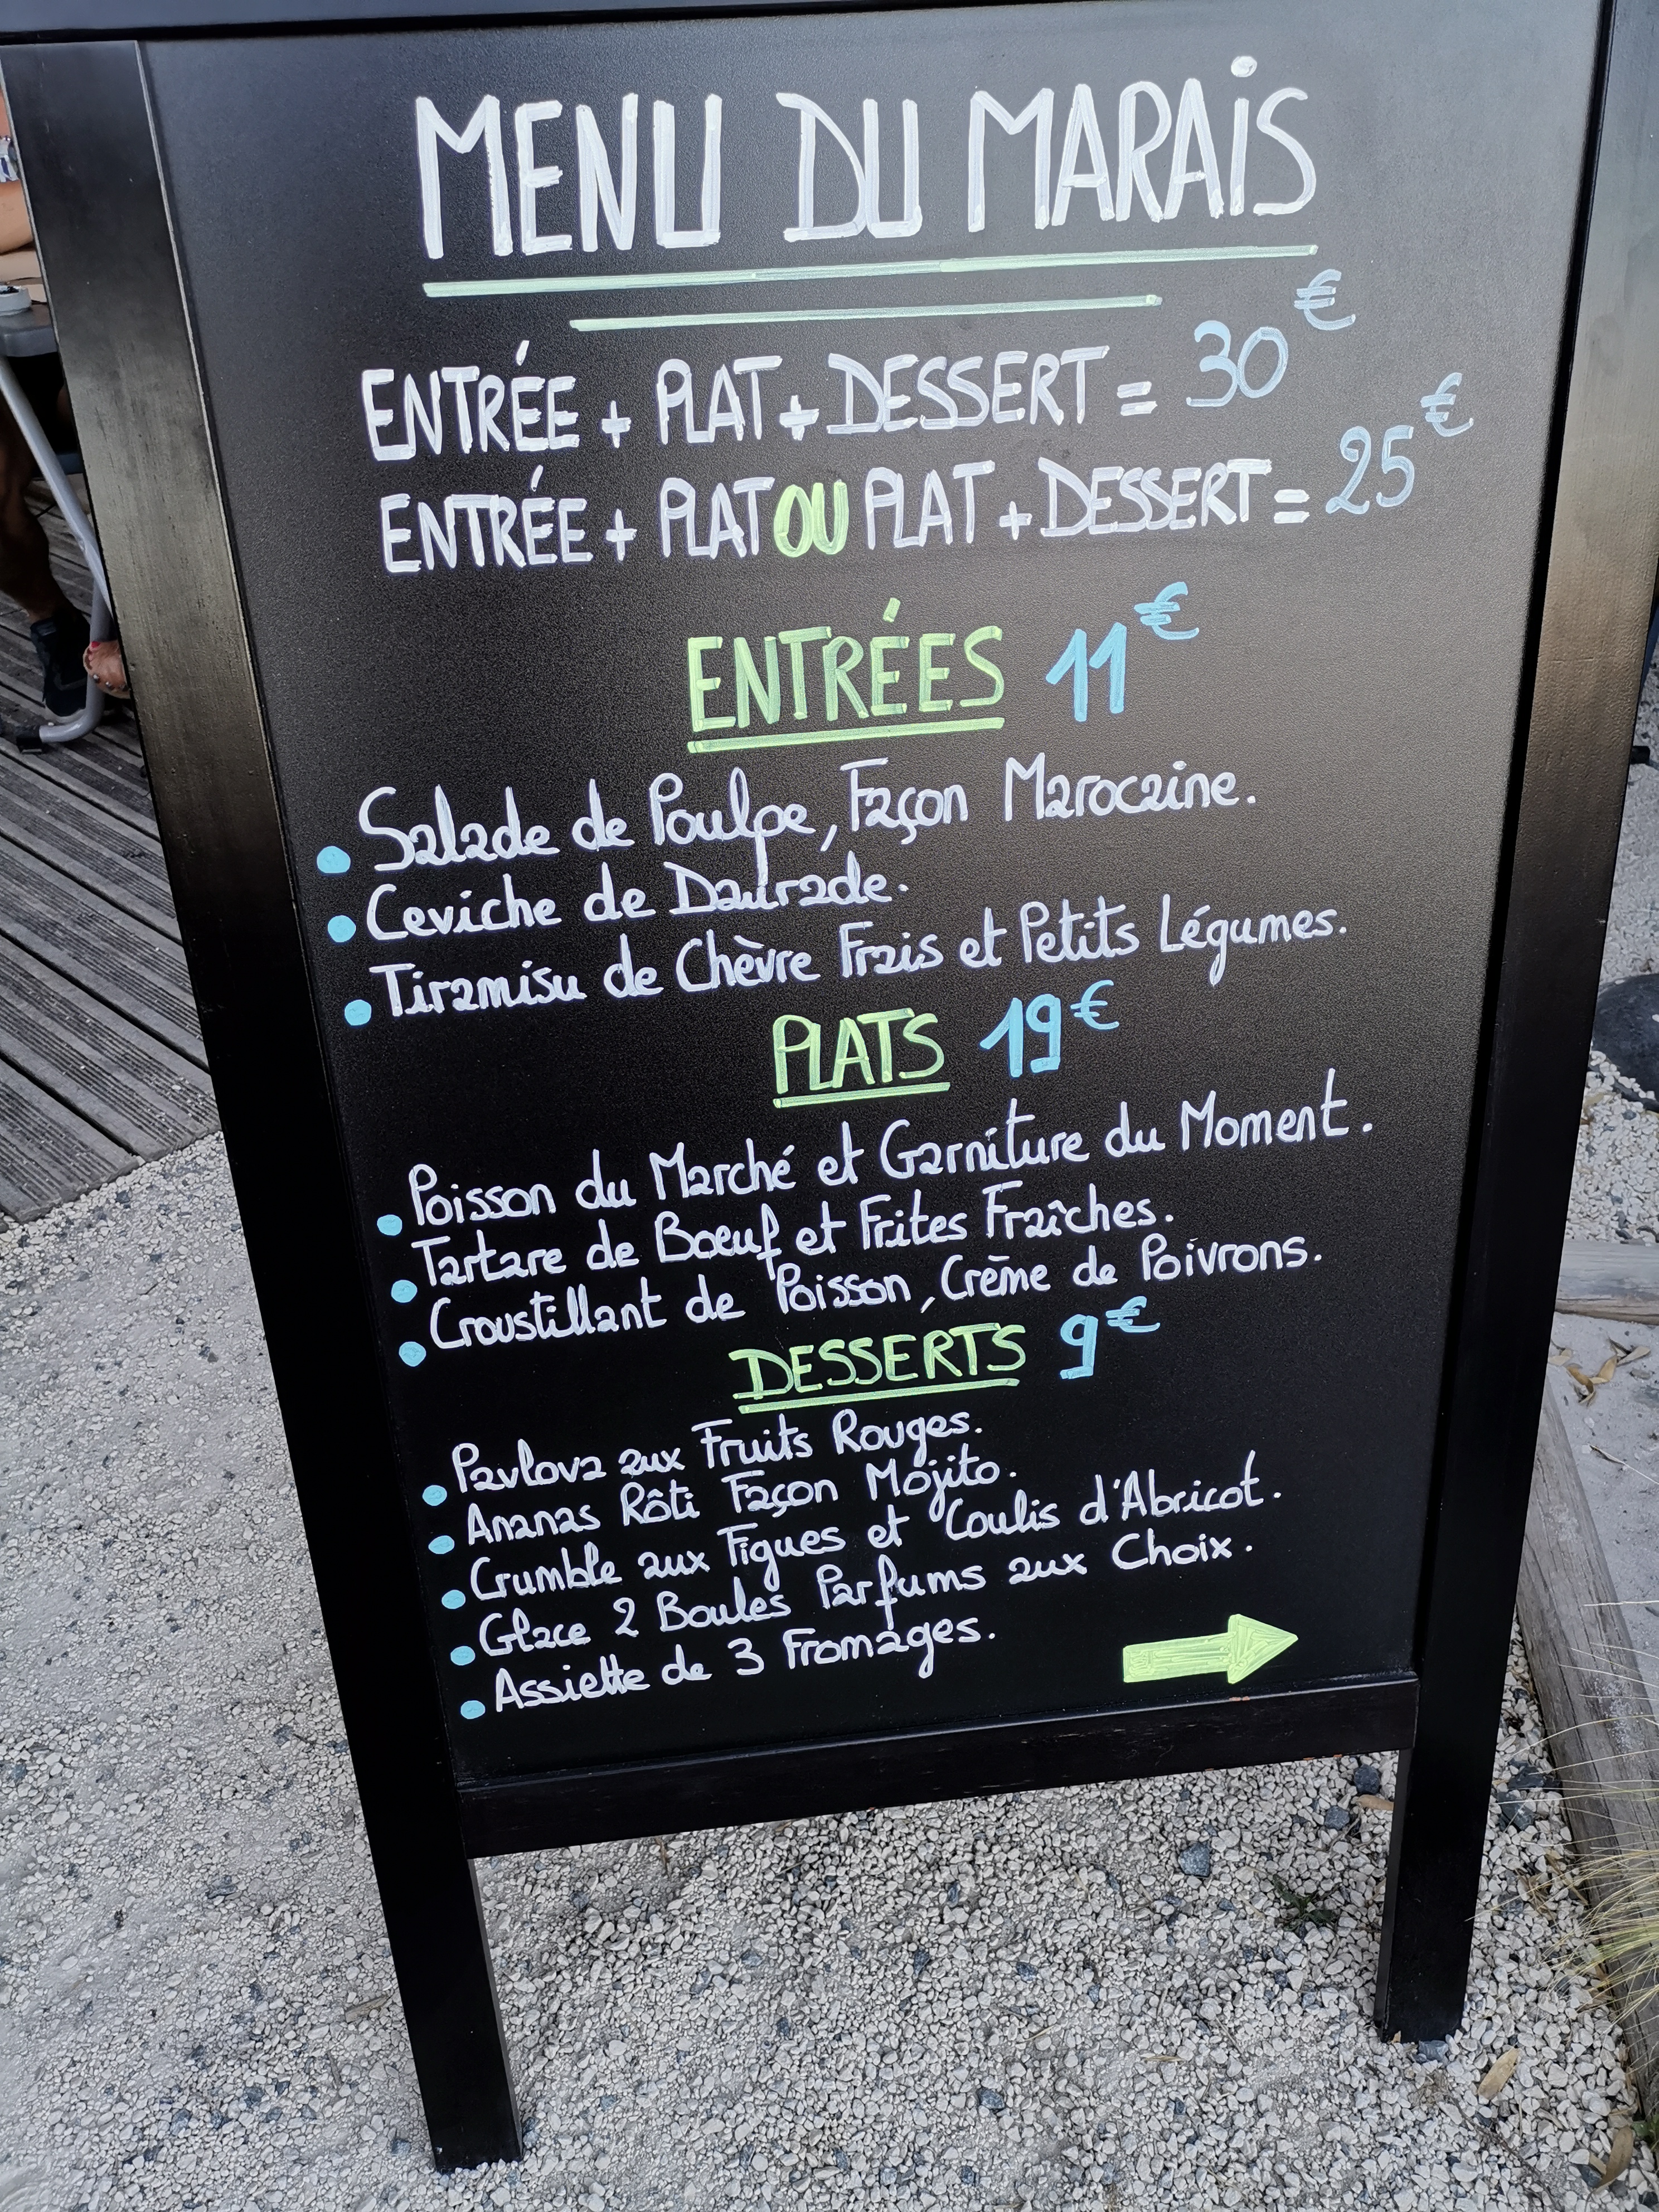 MENU DU MARAIS
ENTRÉE + PLAT + DESSERT = 30€
ENTRÉE + PLAT OU PLAT + DESSERT = 25€
ENTRÉES 11€
• Salade de Poulpe, Façon Marocaine.
• Ceviche de Daurade.
• Tiramisu de Chèvre Frais et Petits Légumes.
PLATS 19€
• Poisson du Marché et Garniture du Moment.
• Tartare de Boeuf et Frites Fraîches.
• Croustillant de Poisson, Crème de Poivrons.
DESSERTS 9€
• Pavlova aux Fruits Rouges.
• Ananas Rôti Façon Mojito.
• Crumble aux Figues et Coulis d'Abricot.
• Glace 2 Boules Parfums aux Choix.
• Assiette de 3 Fromages.